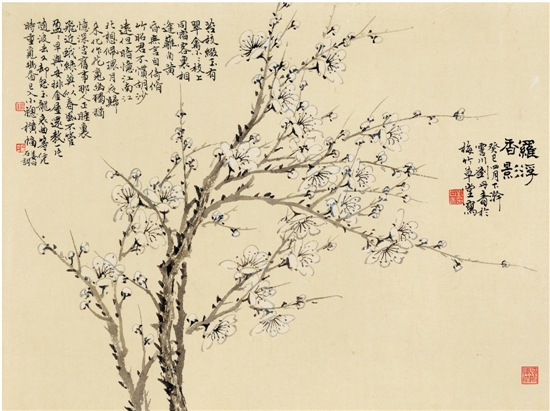 羅浮
香影
癸巳四月下澣
於
梅竹草堂寫
苔枝綴玉有
翠禽小小枝上
同宿客裏相
逢籬角黃
昏無言自倚脩
竹昭君不慣胡沙
遠但暗憶江南江
北想佩環月夜歸
來化作此花幽獨猶
憶深宮舊事那人正睡裏
飛近蛾綠莫似春風不管
盈盈早與安排金屋還教一片
隨波去又却怨玉龍哀曲等恁
時重覓幽香已入小窗橫幅